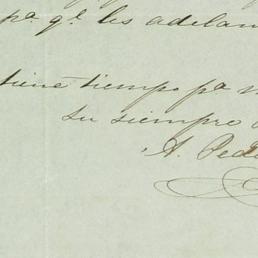 pa. qe. les adelan
tiene tiempo pa.
su siempre
A. Ped